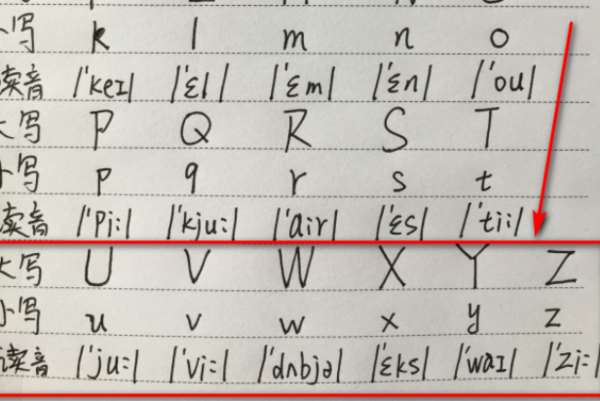 小写 k l m n o
读音 /ˈkeɪ/ /ˈɛl/ /ˈɛm/ /ˈɛn/ /ˈou/
大写 P Q R S T
小写 p q r s t
读音 /ˈpi:/ /ˈkju:/ /ˈa:r/ /ˈɛs/ /ˈti:/
大写 U V W X Y Z
小写 u v w x y z
读音 /ˈju:/ /ˈvi:/ /ˈdʌbjə/ /ˈɛks/ /ˈwaɪ/ /ˈzi:/